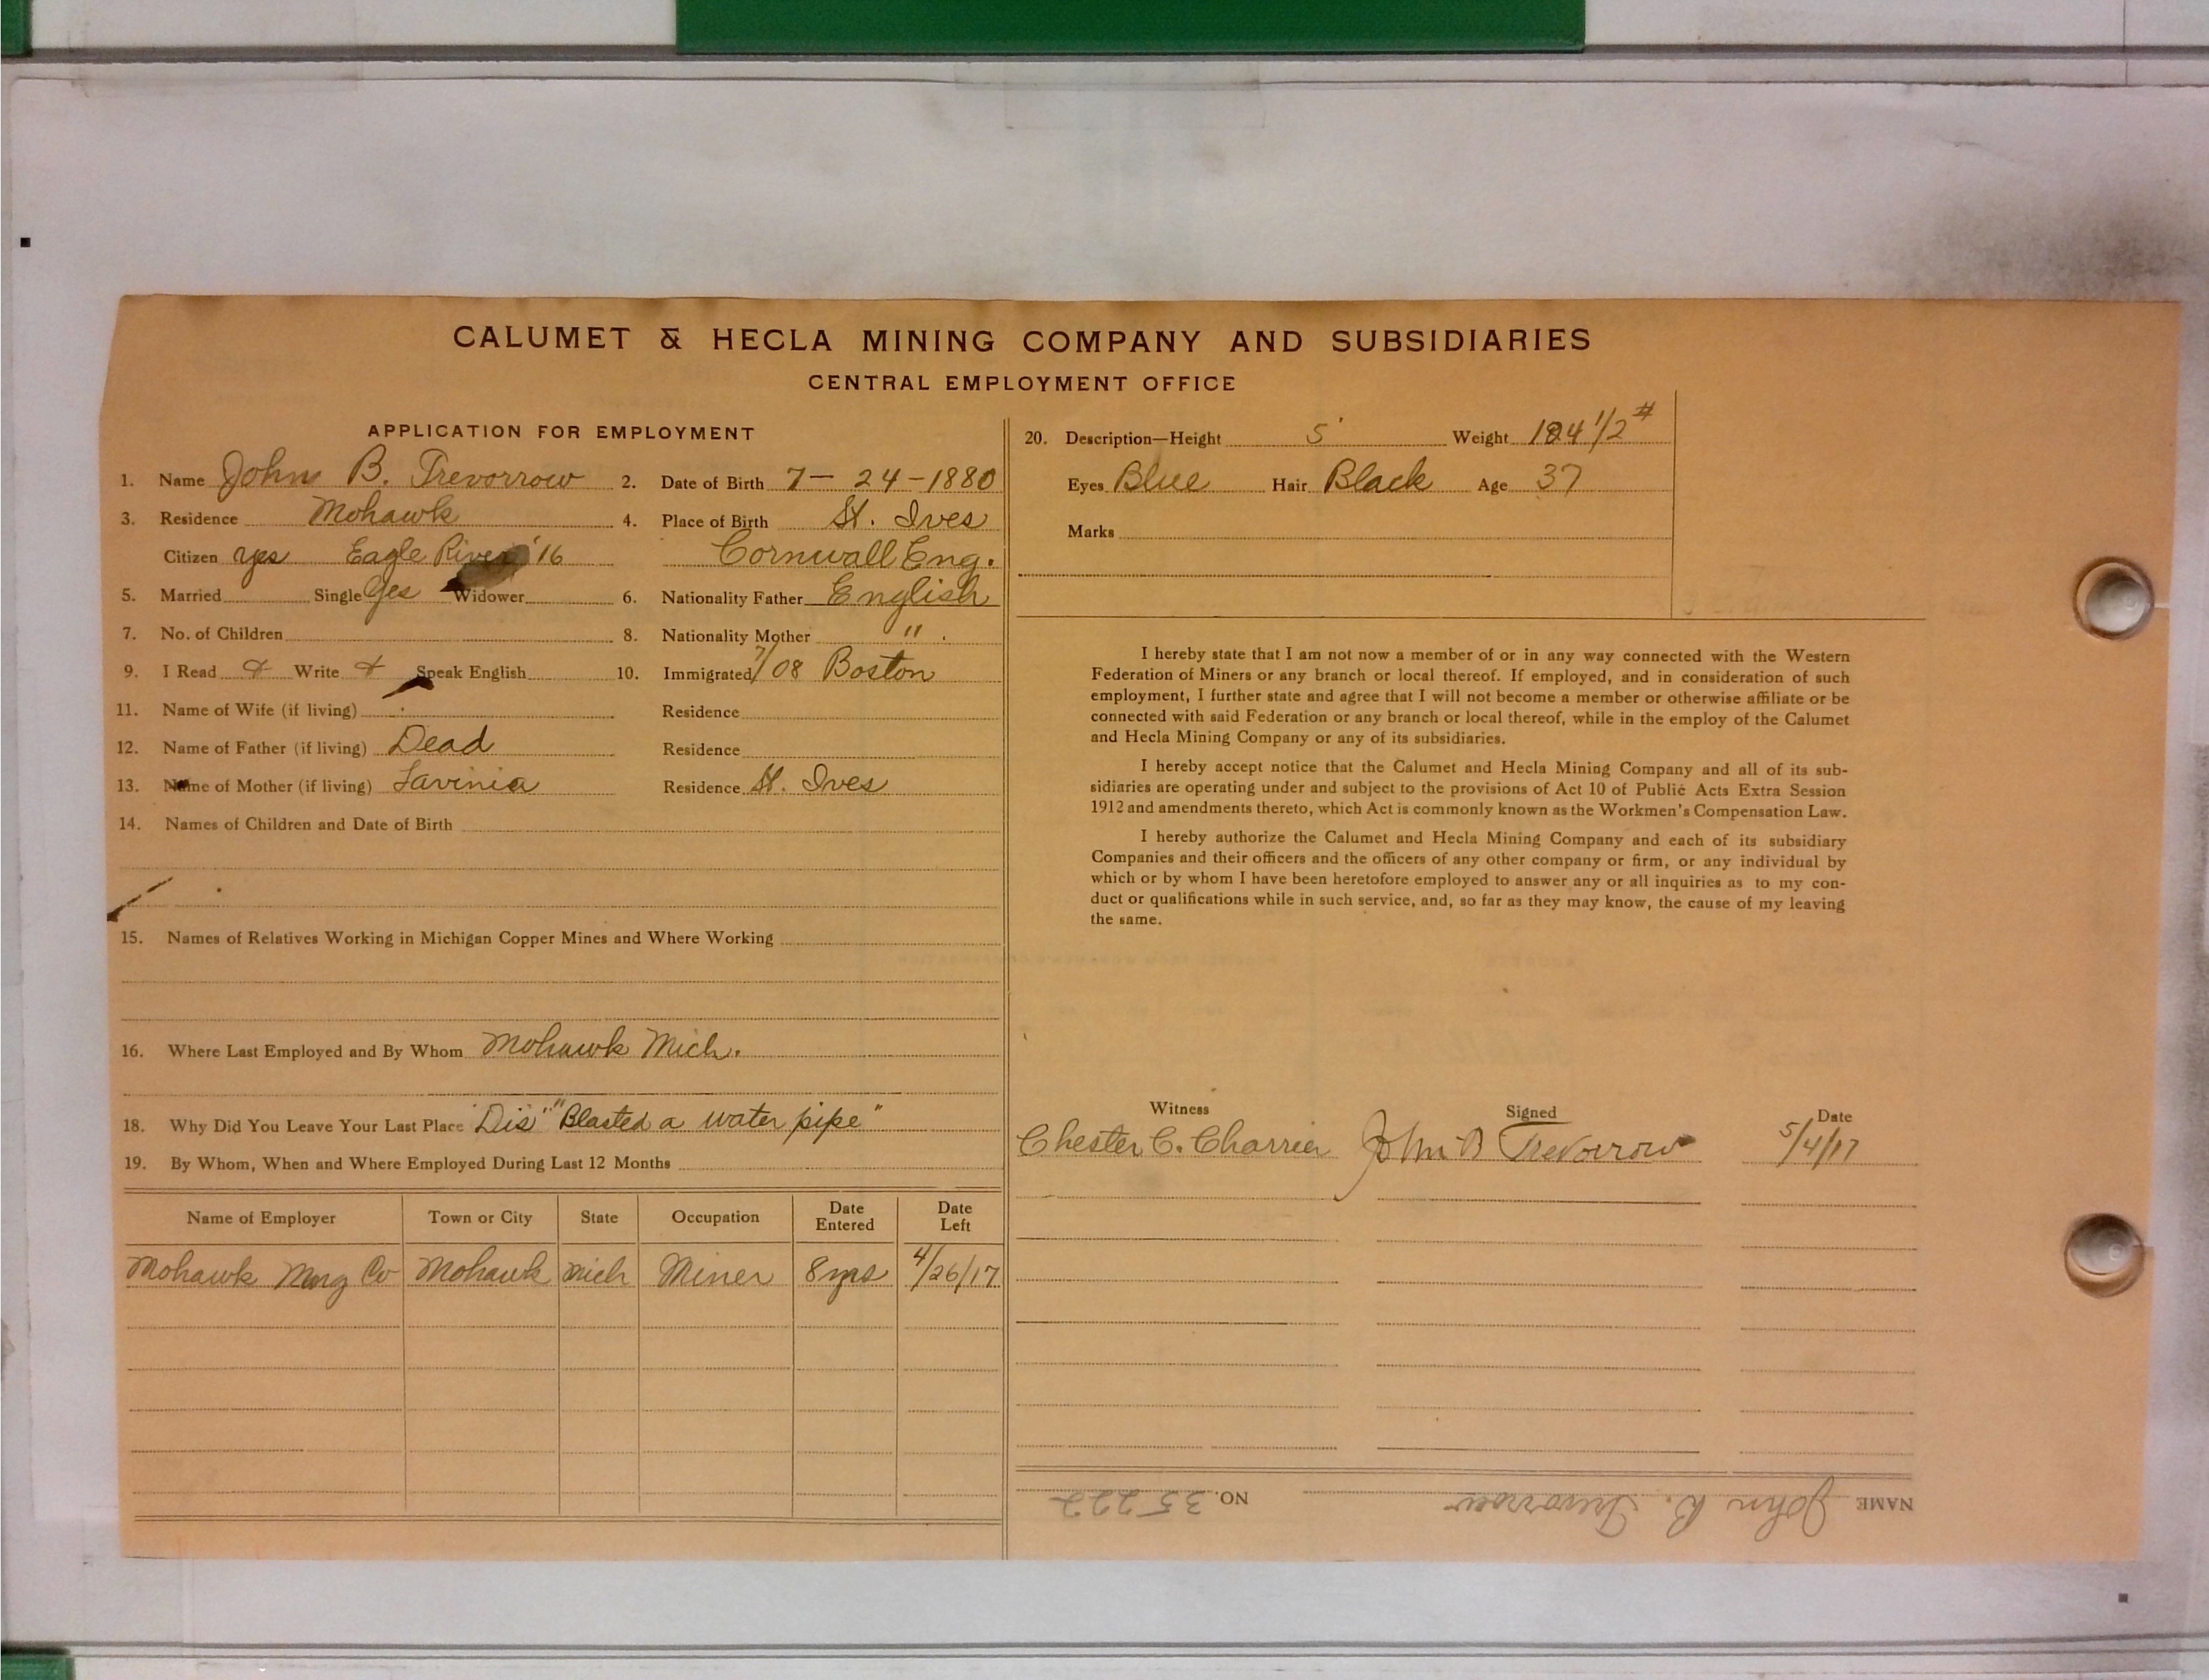 CALUMET & HECLA MINING COMPANY AND SUBSIDIARIES
CENTRAL EMPLOYMENT OFFICE
APPLICATION FOR EMPLOYMENT
1. Name John B. Trevorrow 2. Date of Birth 7 - 24 - 1880
3. Residence Mohawk 4. Place of Birth St. Ives
Citizen yes Eagle River '16 Cornwall Eng.
5. Married Single Yes Widower 6. Nationality Father English
7. No. of Children 8. Nationality Mother " .
9. I Read & Write & Speak English 10. Immigrated 7/08 Boston
11. Name of Wife (if living) Residence
12. Name of Father (if living) Dead Residence
13. Name of Mother (if living) Lavinia Residence St. Ives
14. Names of Children and Date of Birth
15. Names of Relatives Working in Michigan Copper Mines and Where Working
16. Where Last Employed and By Whom Mohawk Mich.
18. Why Did You Leave Your Last Place "Dis" "Blasted a water pipe"
19. By Whom, When and Where Employed During Last 12 Months
Name of Employer Town or City State Occupation Date Entered Date Left
Mohawk Mng Co Mohawk Mich Miner 8 yrs 4/26/17
20. Description—Height 5' Weight 1/2 #
Eyes Blue Hair Black Age 37
Marks
I hereby state that I am not now a member of or in any way connected with the Western
Federation of Miners or any branch or local thereof. If employed, and in consideration of such
employment, I further state and agree that I will not become a member or otherwise affiliate or be
connected with said Federation or any branch or local thereof, while in the employ of the Calumet
and Hecla Mining Company or any of its subsidiaries.
I hereby accept notice that the Calumet and Hecla Mining Company and all of its sub-
sidiaries are operating under and subject to the provisions of Act 10 of Public Acts Extra Session
1912 and amendments thereto, which Act is commonly known as the Workmen's Compensation Law.
I hereby authorize the Calumet and Hecla Mining Company and each of its subsidiary
Companies and their officers and the officers of any other company or firm, or any individual by
which or by whom I have been heretofore employed to answer any or all inquiries as to my con-
duct or qualifications while in such service, and, so far as they may know, the cause of my leaving
the same.
Witness Signed Date
Chester C. Charrier John B Trevorrow 5/4/17
NAME John B. Trevorrow NO. 35222